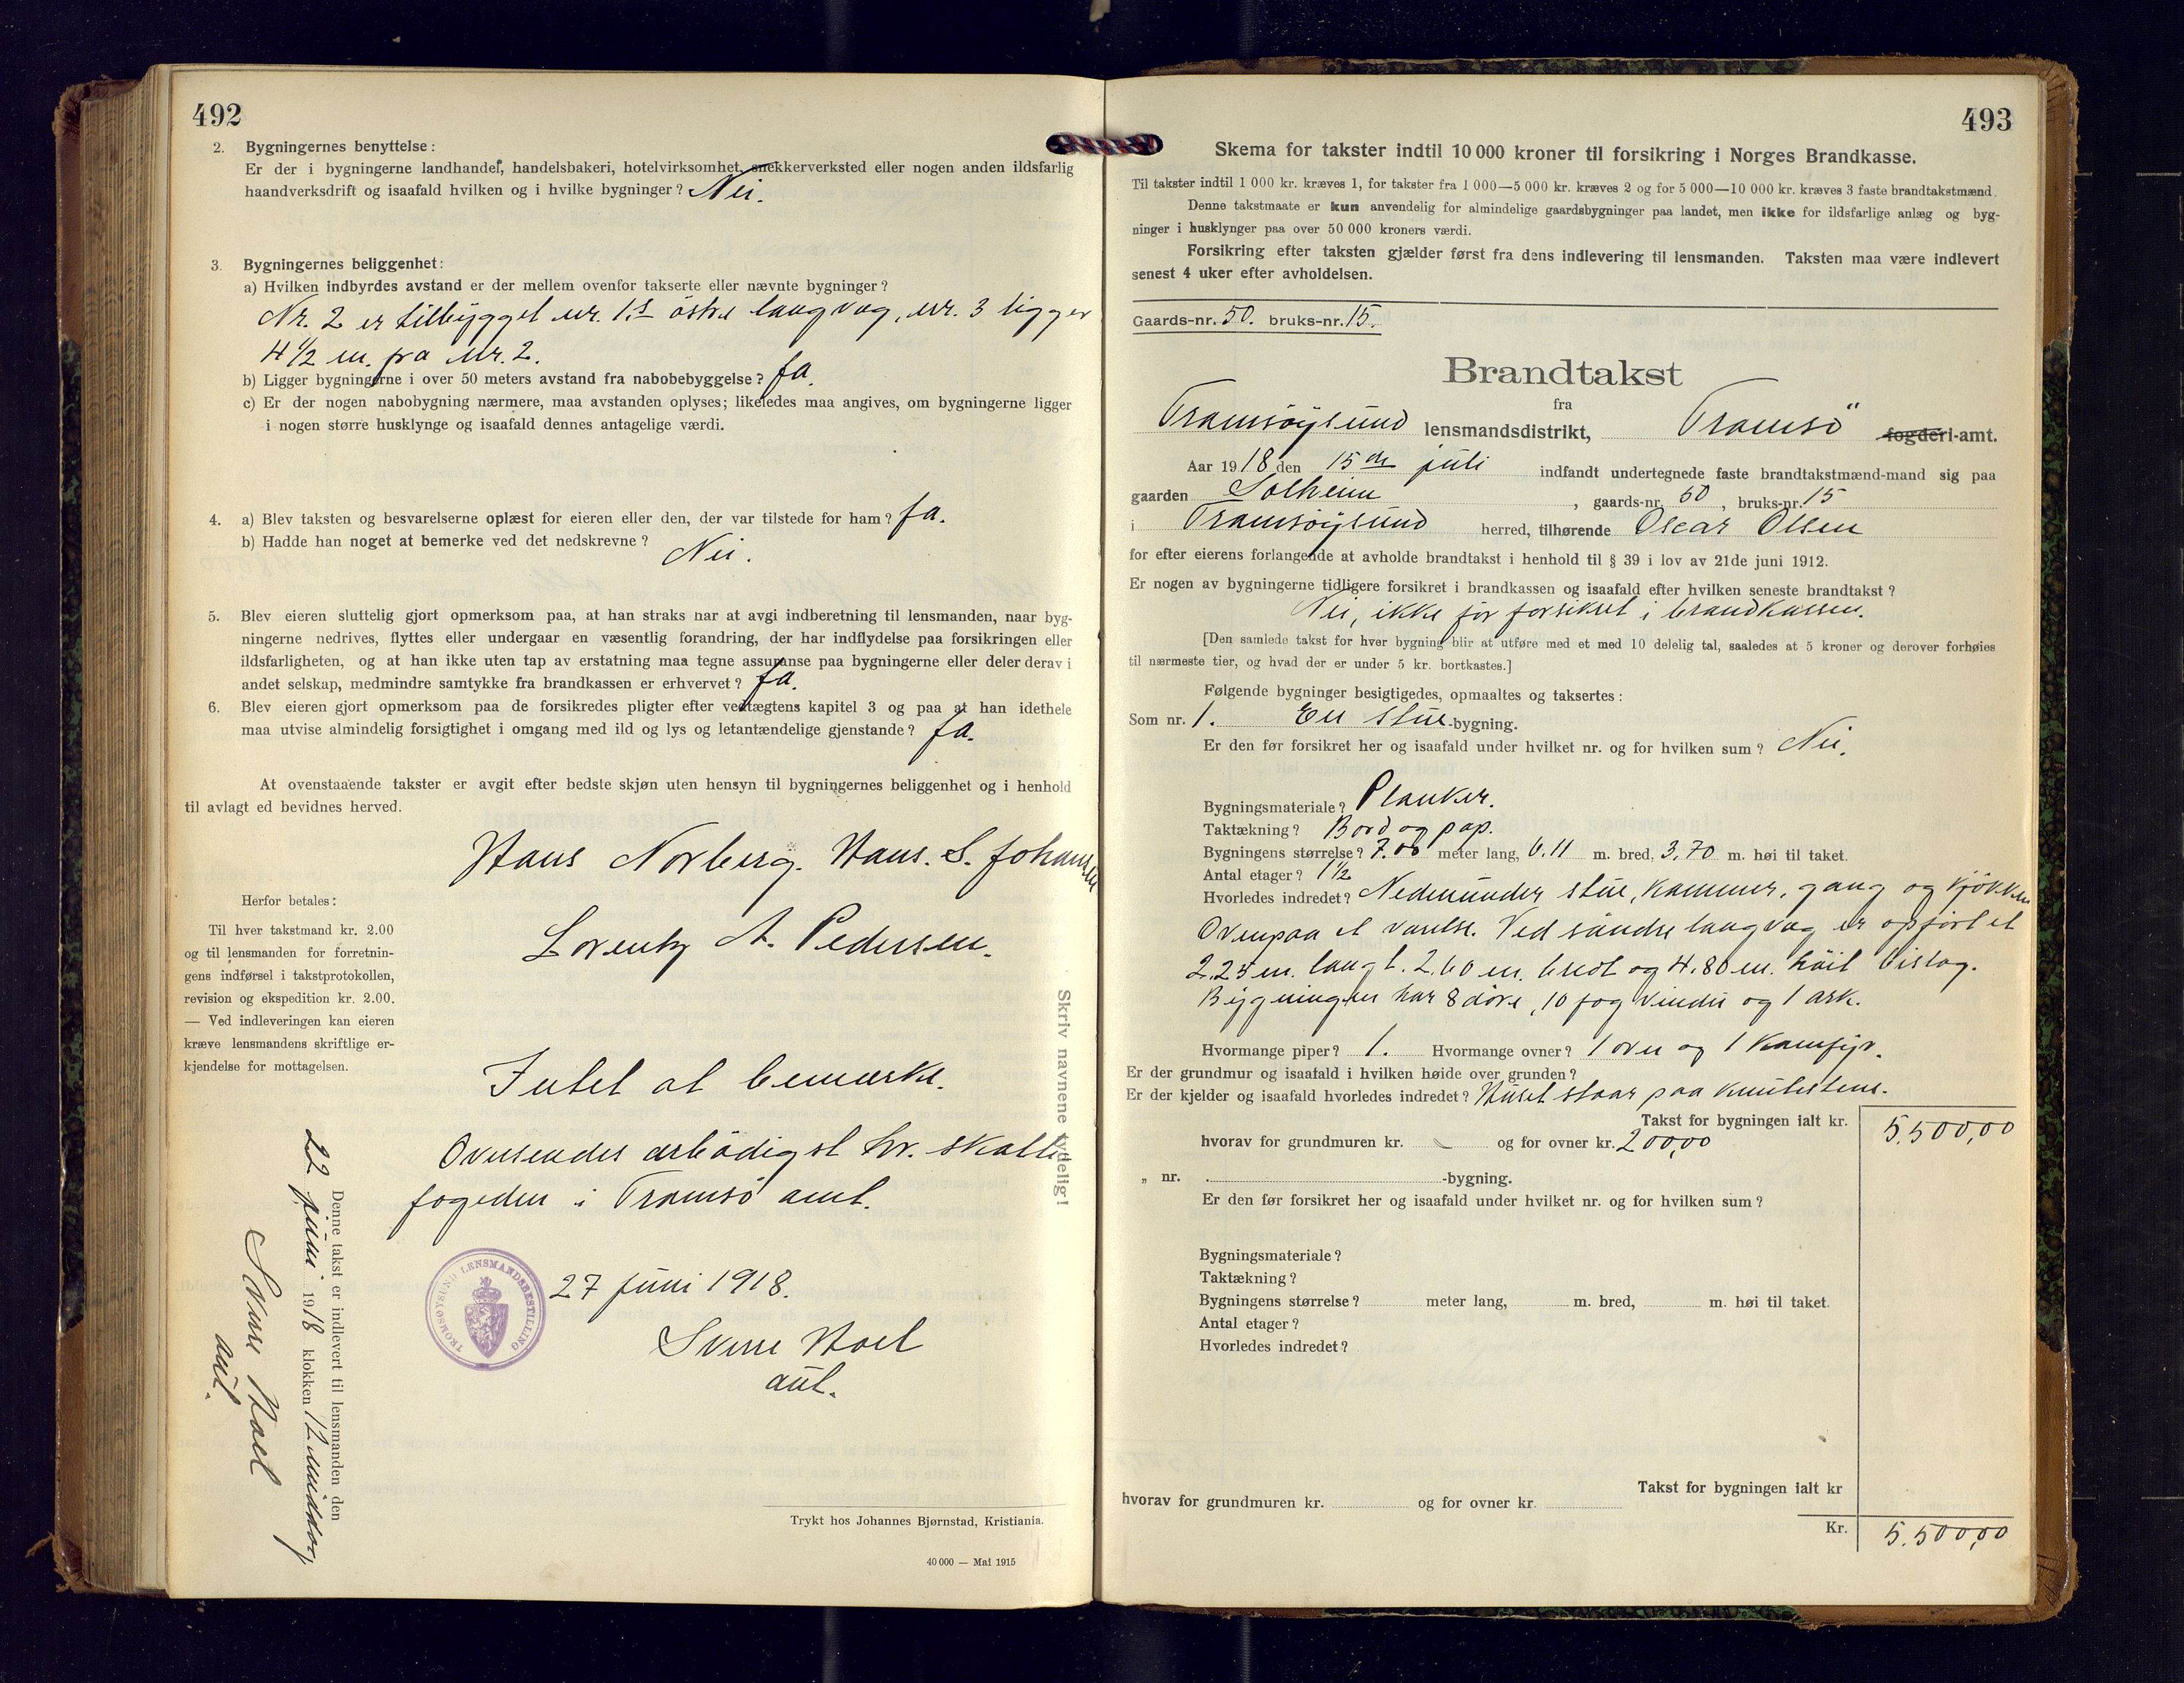 492
2. Bygningernes benyttelse:
Er der i bygningerne landhandel, handelsbakeri, hotelvirksomhet, snekkerverksted eller nogen anden ildsfarlig
haandverksdrift og isaafald hvilken og i hvilke bygninger? Nei.
3. Bygningernes beliggenhet:
a) Hvilken indbyrdes avstand er der mellem ovenfor takserte eller nævnte bygninger?
Nr. 2 er tilbygget nr. 1.s østre langvæg, nr. 3 ligger
4 1/2 m. fra nr. 2.
b) Ligger bygningerne i over 50 meters avstand fra nabobebyggelse? Ja.
c) Er der nogen nabobygning nærmere, maa avstanden oplyses; likeledes maa angives, om bygningerne ligger
i nogen større husklynge og isaafald dennes antagelige værdi.
4. a) Blev taksten og besvarelserne oplæst for eieren eller den, der var tilstede for ham? Ja.
b) Hadde han noget at bemerke ved det nedskrevne? Nei.
5. Blev eieren sluttelig gjort opmerksom paa, at han straks har at avgi indberetning til lensmanden, naar byg-
ningerne nedrives, flyttes eller undergaar en væsentlig forandring, der har indflydelse paa forsikringen eller
ildsfarligheten, og at han ikke uten tap av erstatning maa tegne assuranse paa bygningerne eller deler derav i
andet selskap, medmindre samtykke fra brandkassen er erhvervet? Ja.
6. Blev eieren gjort opmerksom paa de forsikredes pligter efter vedtægtens kapitel 3 og paa at han idethele
maa utvise almindelig forsigtighet i omgang med ild og lys og letantændelige gjenstande? Ja.
At ovenstaaende takster er avgit efter bedste skjøn uten hensyn til bygningernes beliggenhet og i henhold
til avlagt ed bevidnes herved.
Hans Norberg. Hans. S. Johansen
Lorentz A. Pedersen.
Herfor betales:
Til hver takstmand kr. 2.00
og til lensmanden for forretnin-
gens indførsel i takstprotokollen,
revision og ekspedition kr. 2.00.
— Ved indleveringen kan eieren
kræve lensmandens skriftlige er-
kjendelse for mottagelsen.
Skriv navnene tydelig!
Intet at bemærke.
Oversendes ærbødigst hr. skatte
fogeden i Tromsø amt.
27 juni 1918.
TROMSØYSUND LENSMANDSBESTILLING
Sverre Hoel
aut.
Denne takst er indlevert til lensmanden den
22 juni 1918 klokken 12 middag
Sverre Hoel
aut.
Trykt hos Johannes Bjørnstad, Kristiania.
40 000 — Mai 1915
493
Skema for takster indtil 10 000 kroner til forsikring i Norges Brandkasse.
Til takster indtil 1 000 kr. kræves 1, for takster fra 1 000—5 000 kr. kræves 2 og for 5 000—10 000 kr. kræves 3 faste brandtakstmænd.
Denne takstmaate er kun anvendelig for almindelige gaardsbygninger paa landet, men ikke for ildsfarlige anlæg og byg-
ninger i husklynger paa over 50 000 kroners værdi.
Forsikring efter taksten gjælder først fra dens indlevering til lensmanden. Taksten maa være indlevert
senest 4 uker efter avholdelsen.
Gaards-nr. 50. bruks-nr. 15.
Brandtakst
fra
Tromsøysund lensmandsdistrikt, Tromsø fogderi-amt.
Aar 1918 den 15de juli indfandt undertegnede faste brandtakstmænd-mand sig paa
gaarden Solheim, gaards-nr. 50, bruks-nr. 15
i Tromsøysund herred, tilhørende Oscar Olsen
for efter eierens forlangende at avholde brandtakst i henhold til § 39 i lov av 21de juni 1912.
Er nogen av bygningerne tidligere forsikret i brandkassen og isaafald efter hvilken seneste brandtakst?
Nei, ikke før forsikret i brandkassen.
[Den samlede takst for hver bygning blir at utføre med et med 10 delelig tal, saaledes at 5 kroner og derover forhøies
til nærmeste tier, og hvad der er under 5 kr. bortkastes.]
Følgende bygninger besigtigedes, opmaaltes og taksertes:
Som nr. 1. En stue-bygning.
Er den før forsikret her og isaafald under hvilket nr. og for hvilken sum? Nei.
Bygningsmateriale? Planker.
Taktækning? Bord og pap.
Bygningens størrelse? 7.00 meter lang, 6.11 m. bred, 3.70 m. høi til taket.
Antal etager? 1 1/2
Hvorledes indredet? Nedenunder stue, kammer, gang og kjøkken
Ovenpaa et værelse. Ved søndre langvæg er opført et
2.25 m. langt. 2.60 m. bredt og 4.80 m. høit bislag.
Bygningen har 8 døre, 10 fag vindu og 1 ark.
Hvormange piper? 1. Hvormange ovner? 1 ovn og 1 komfyr.
Er der grundmur og isaafald i hvilken høide over grunden?
Er der kjelder og isaafald hvorledes indredet? Huset staar paa knubstens.
Takst for bygningen ialt kr. 5.500,00
hvorav for grundmuren kr. og for ovner kr. 200,00
„ nr. -bygning.
Er den før forsikret her og isaafald under hvilket nr. og for hvilken sum?
Bygningsmateriale?
Taktækning?
Bygningens størrelse? meter lang, m. bred, m. høi til taket.
Antal etager?
Hvorledes indredet?
Takst for bygningen ialt kr
hvorav for grundmuren kr. og for ovner kr.
Kr. 5.500,00